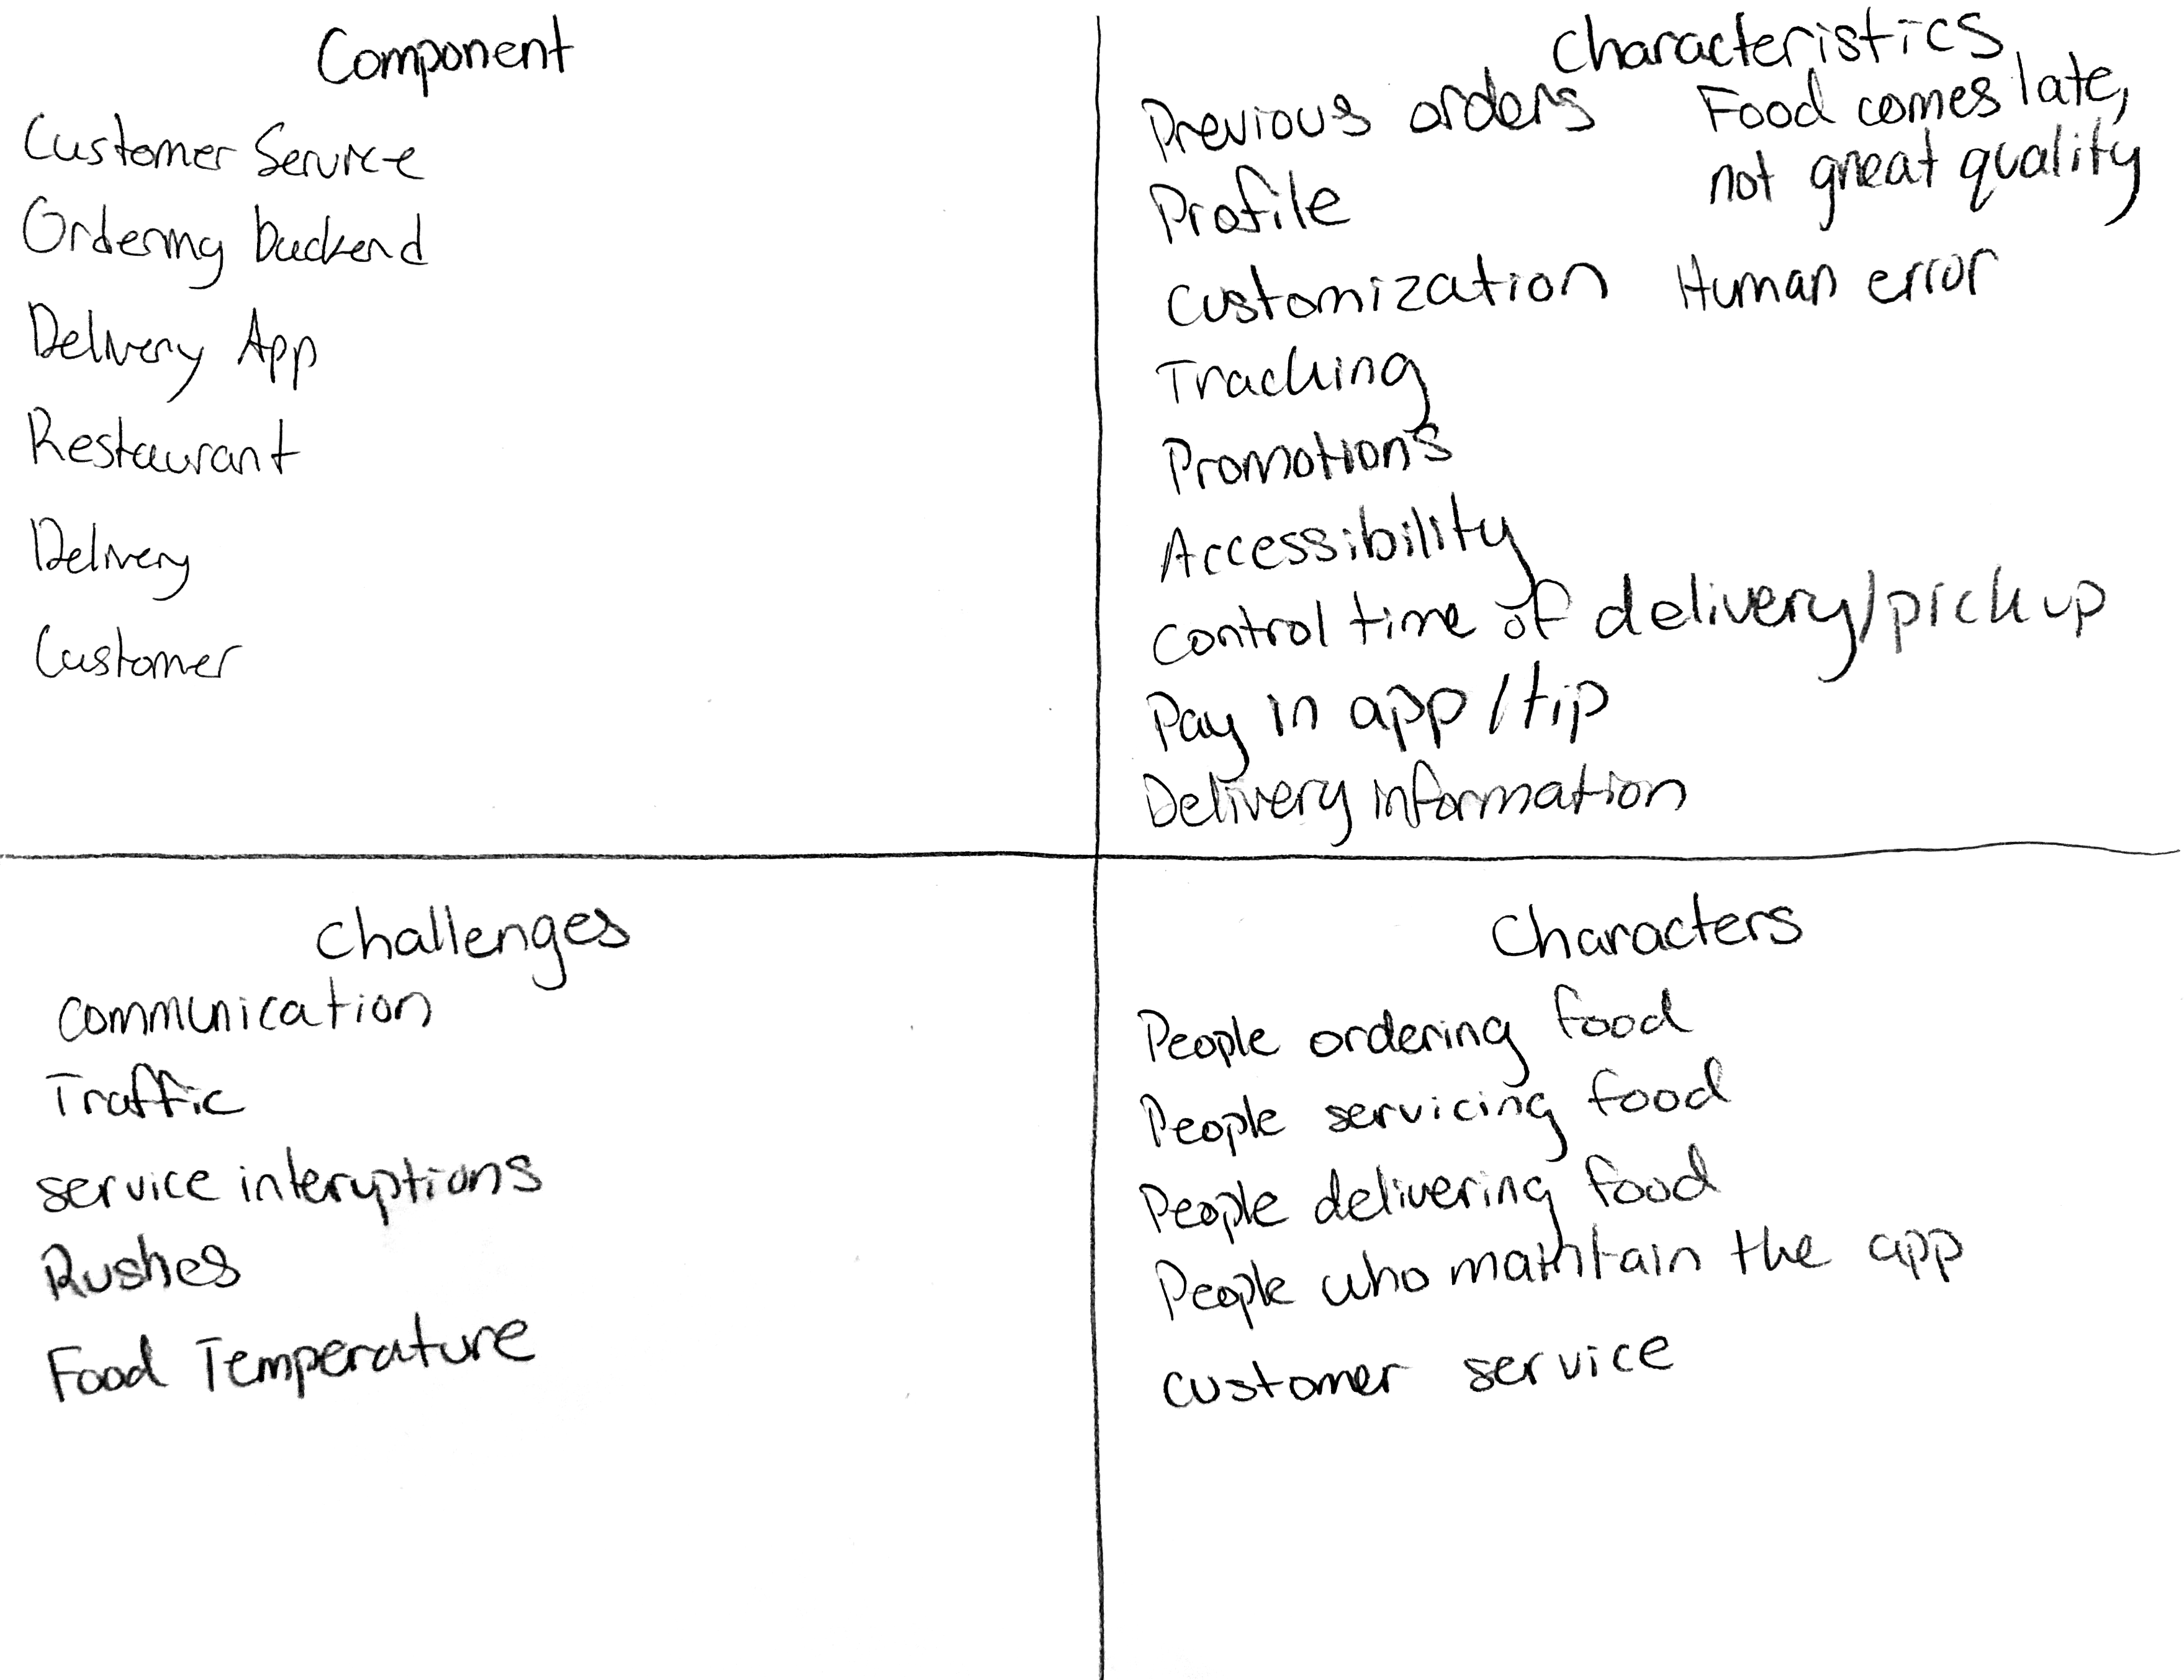 Component
Customer Service
Ordering backend
Delivery App
Restaurant
Delivery
Customer
Characteristics
Previous orders
Profile
Customization
Tracking
Promotions
Accessibility
Control time of delivery/pick up
Pay in app / tip
Delivery information
Food comes late,
not great quality
Human error
Challenges
Communication
Traffic
service interuptions
Rushes
Food Temperature
Characters
People ordering food
People servicing food
People delivering food
People who maintain the app
customer service